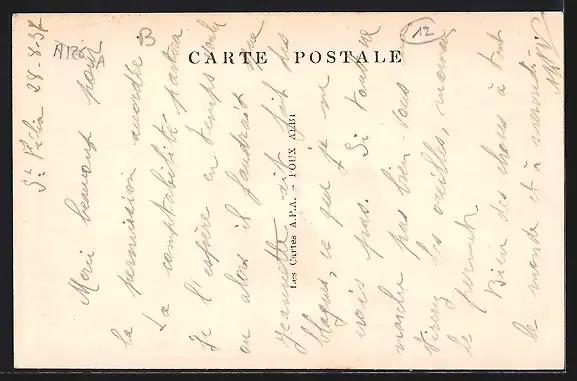 CARTE POSTALE
Les Cartes A.P.A. - POUX ALBI
12
B
A126
St Félix 28-8-37
Merci beaucoup pour
la permission accordée
La comptabilité partira
Je l'espère en temps voulu
ou alors il faudrait que
Jeannette ait fait des
blagues, ce que je ne
crois pas. Si tout ne
marche pas bien vous
tirerez les oreilles, maman
le permet.
Bien des choses à tout
le monde et à